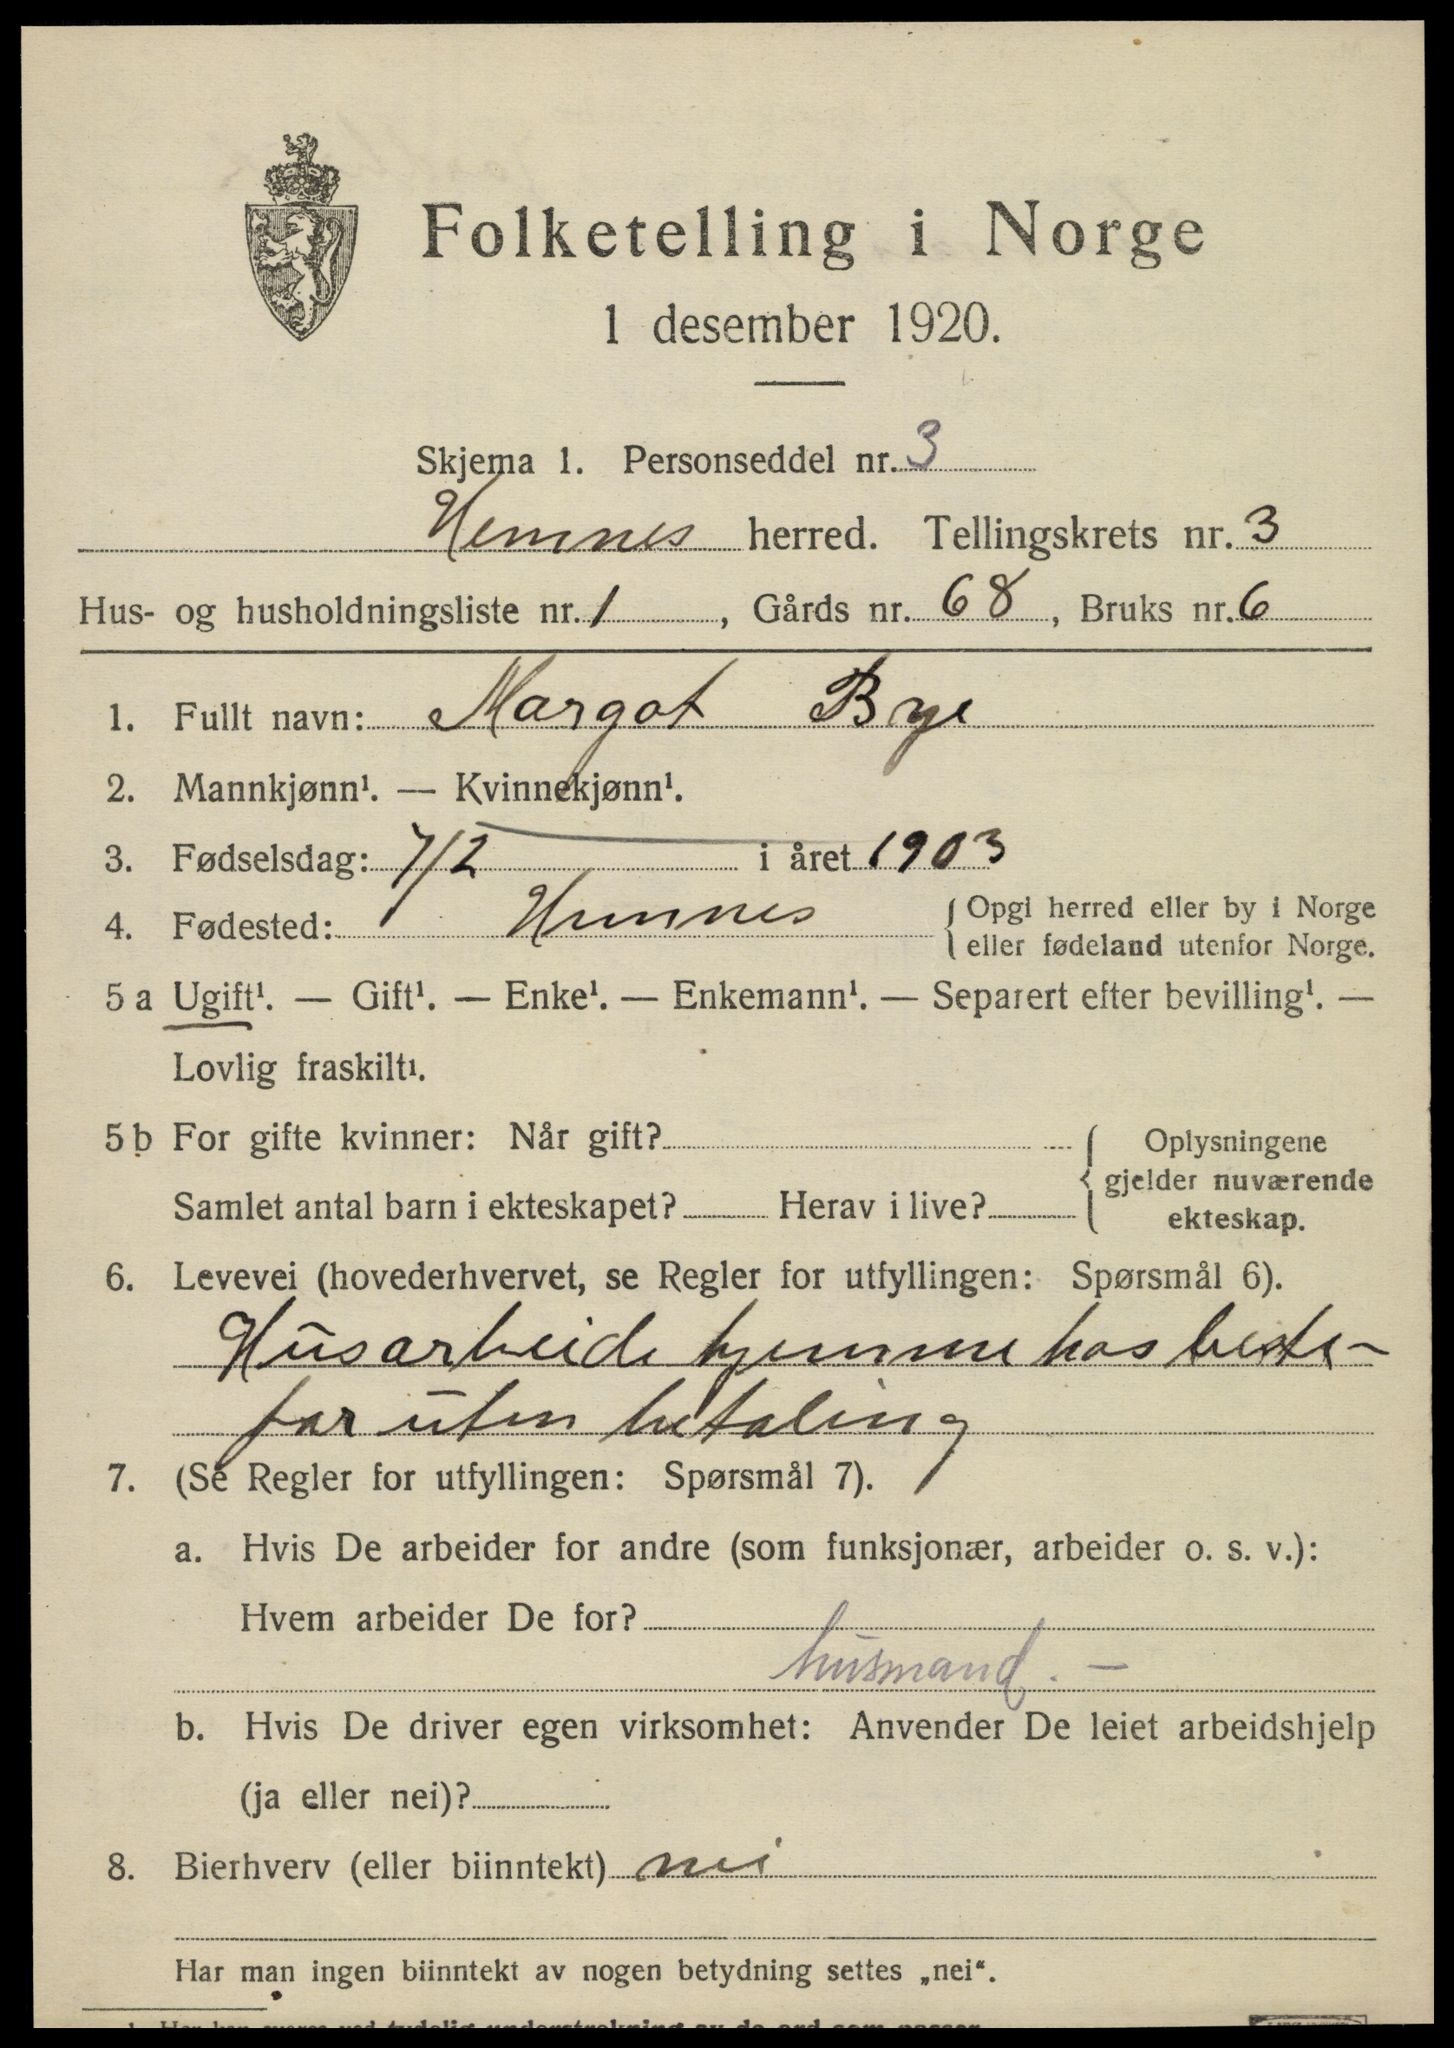 Folketelling i Norge
1 desember 1920.
Skjema 1. Personseddel nr. 3
Hemnes herred. Tellingskrets nr. 3
Hus- og husholdningsliste nr. 1, Gårds nr. 68, Bruks nr. 6
1. Fullt navn: Margot Bye
2. Mannkjønn¹. — Kvinnekjønn¹.
3. Fødselsdag: 7/2 i året 1903
4. Fødested: Hemnes { Opgi herred eller by i Norge
eller fødeland utenfor Norge.
5 a Ugift¹. — Gift¹. — Enke¹. — Enkemann¹. — Separert efter bevilling¹. —
Lovlig fraskilt¹.
5 b For gifte kvinner: Når gift? { Oplysningene
gjelder nuværende
Samlet antal barn i ekteskapet? Herav i live? ekteskap.
6. Levevei (hovederhvervet, se Regler for utfyllingen: Spørsmål 6).
Husarbeide hjemme hos beste-
far uten betaling
7. (Se Regler for utfyllingen: Spørsmål 7).
a. Hvis De arbeider for andre (som funksjonær, arbeider o. s. v.):
Hvem arbeider De for?
husmand. —
b. Hvis De driver egen virksomhet: Anvender De leiet arbeidshjelp
(ja eller nei)?
8. Bierhverv (eller biinntekt) nei
Har man ingen biinntekt av nogen betydning settes „nei“.
1 Her kan svares ved tydelig understrekning av de ord som passer.